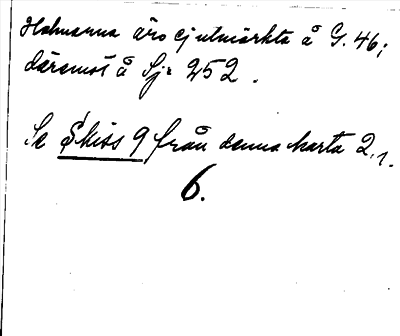 Holmarna äro ej utmärkta å G. 46;
däremot å Sj: 252.
Se Skiss 9 från denna karta 2.1.
6.